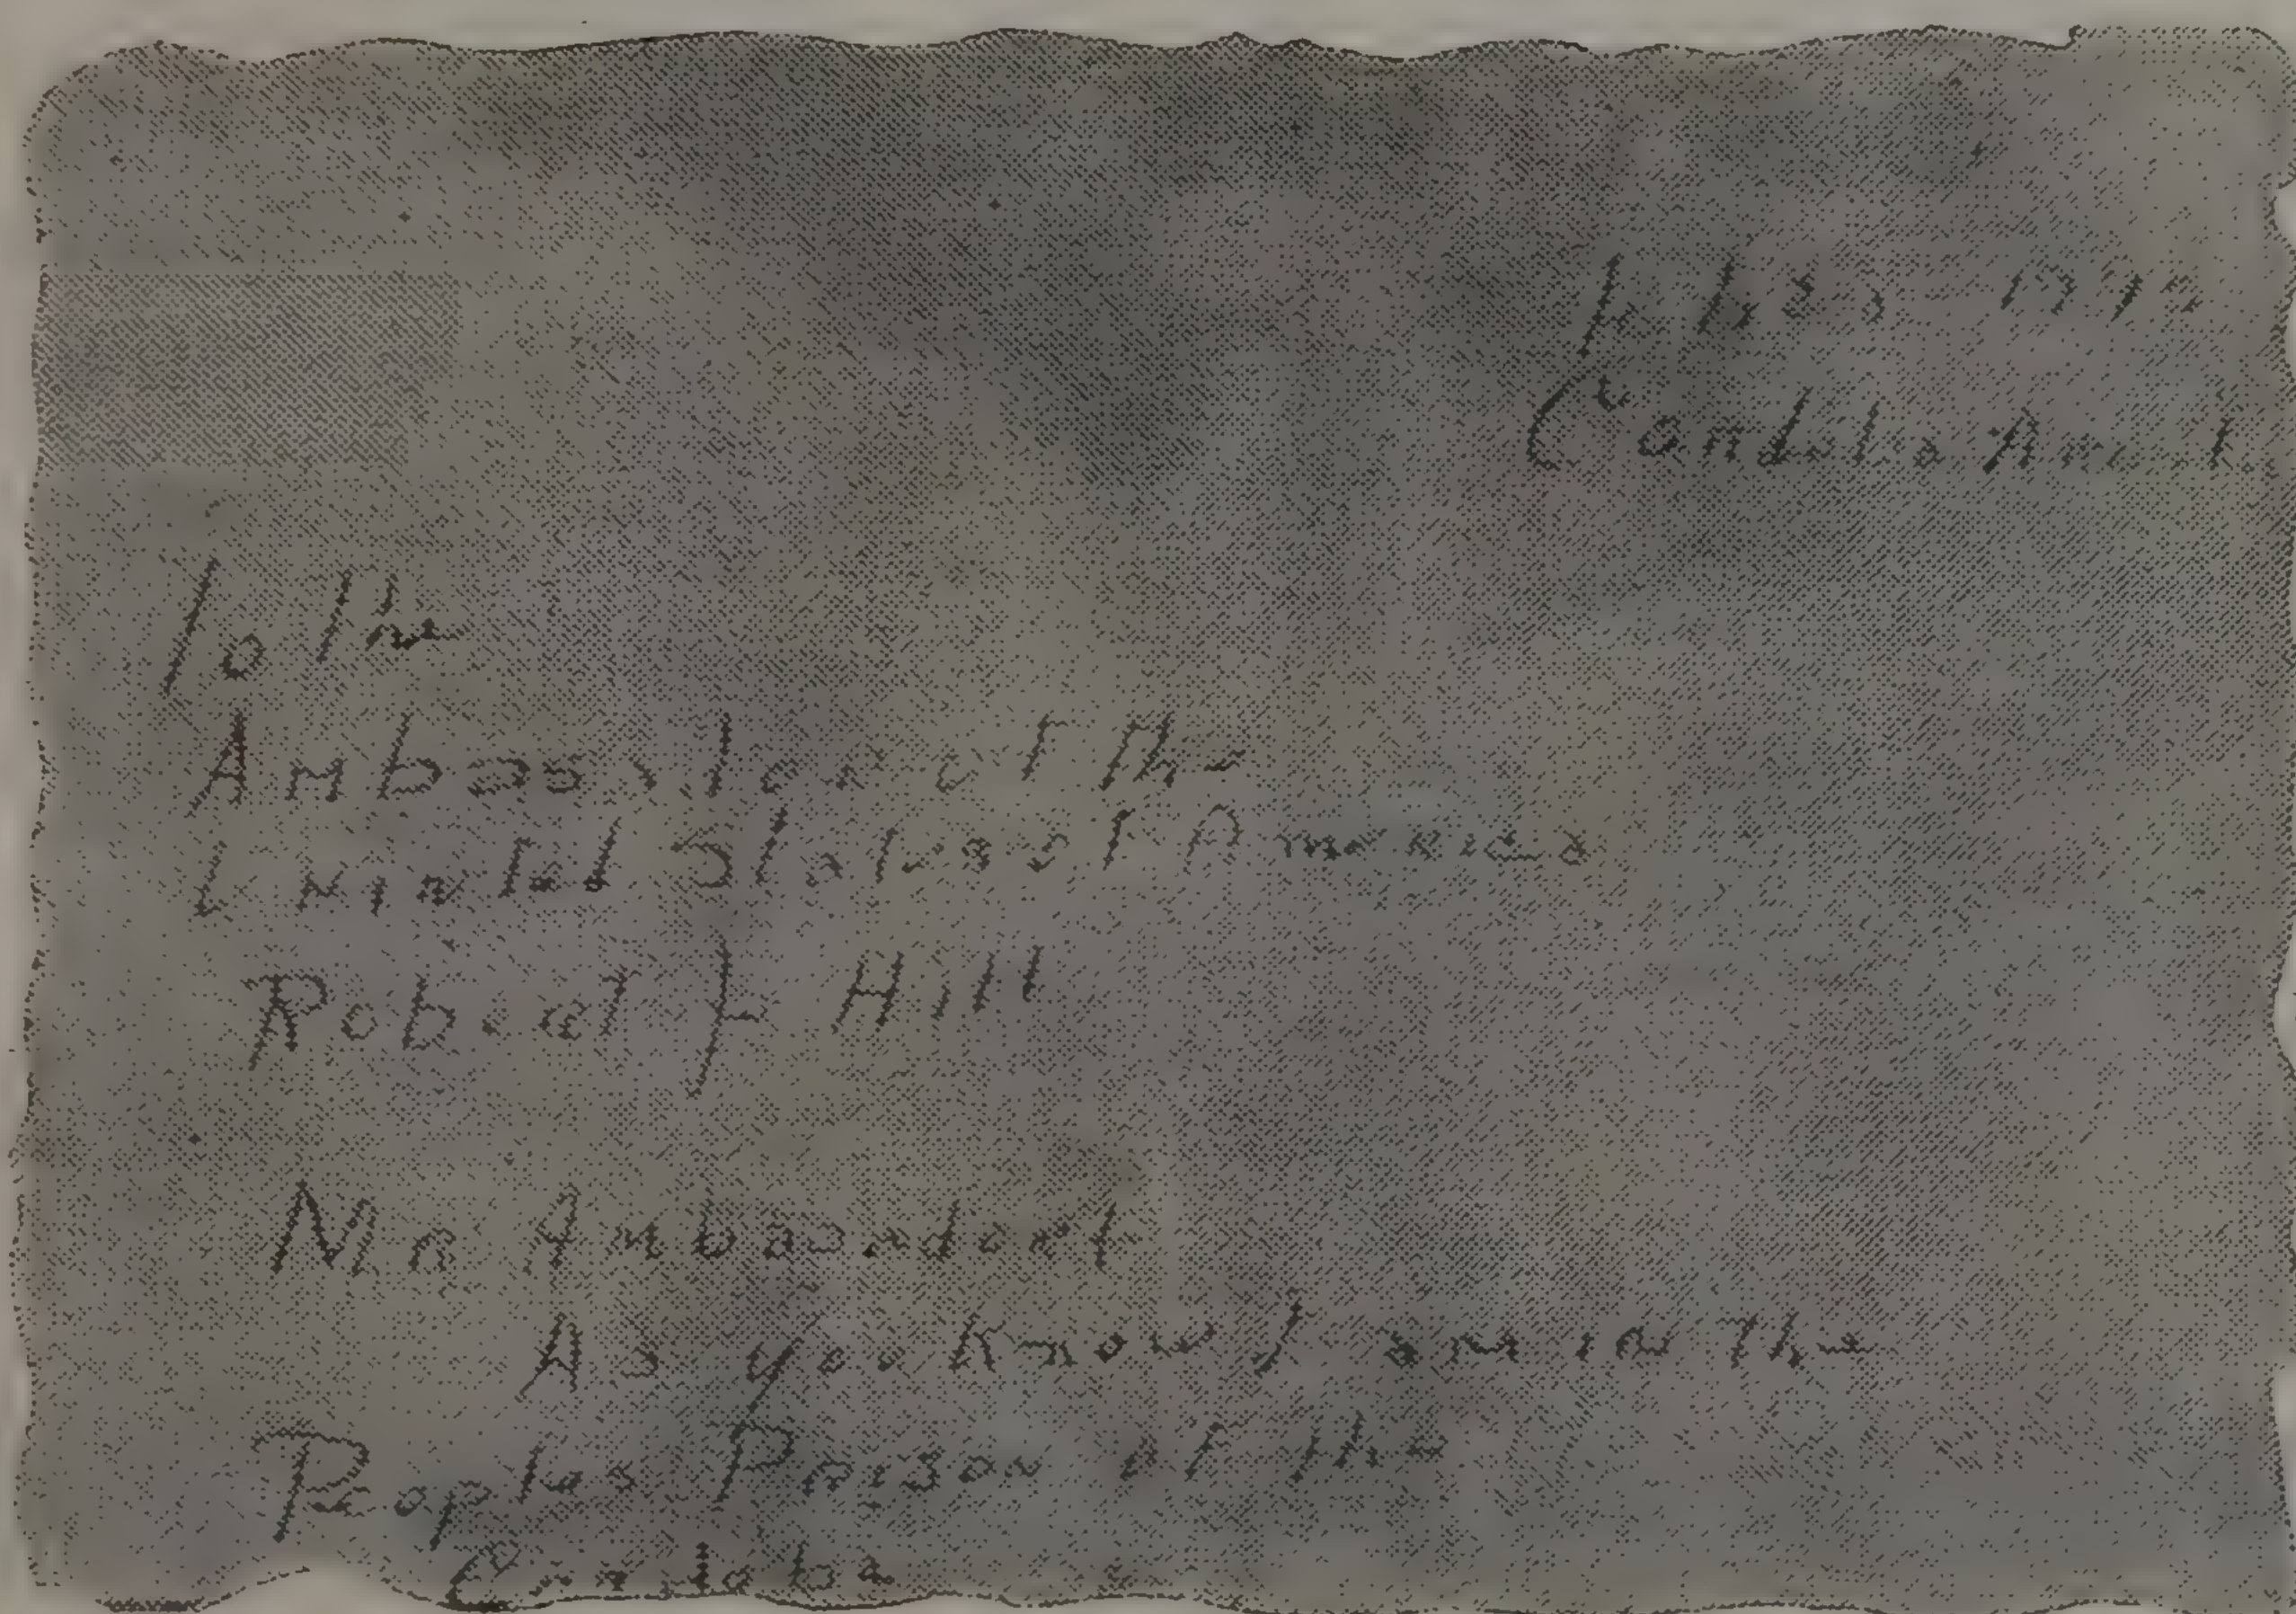 Cordoba
To the
Ambassador of the
United States of America
Robert Hill
Mr Ambassador
As you know I am in the
Peoples Prison of the
Cordoba